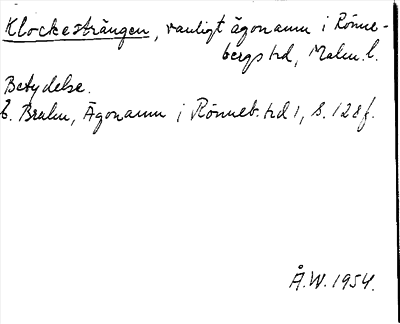 Klockesträngen, vanligt ägonamn i Rönne-
bergs hd, Malm. l.
Betydelse.
E. Bruhn, Ägonamn i Rönneb. hd 1, s. 128 f.
Å.W. 1954.